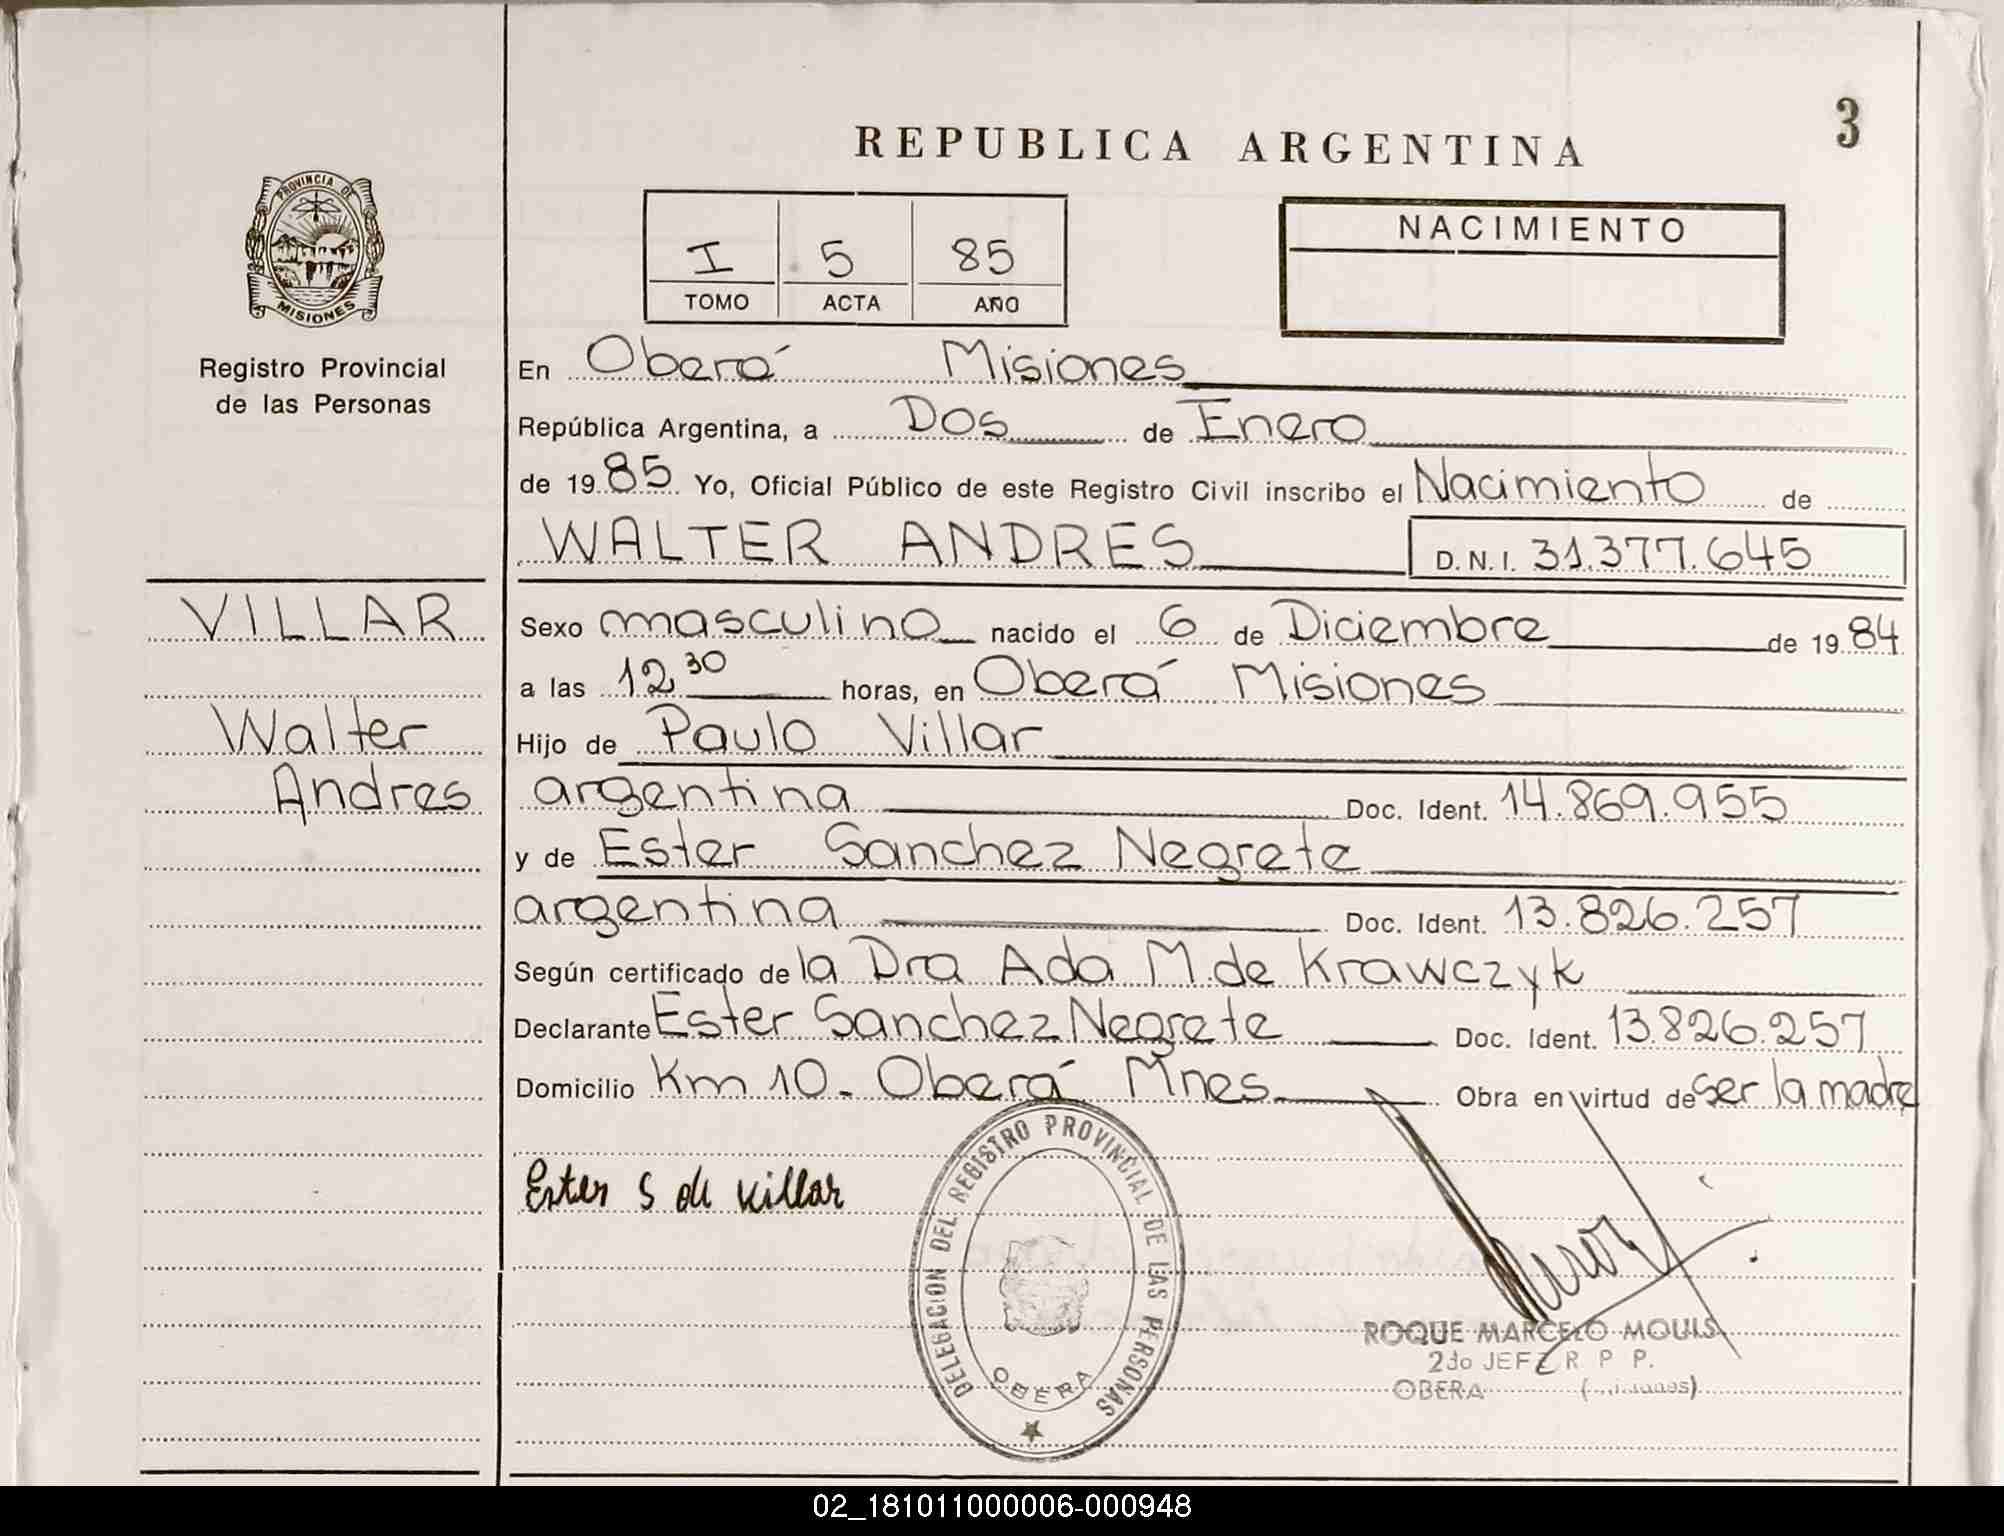 3
REPUBLICA ARGENTINA
PROVINCIA DE
MISIONES
Registro Provincial
de las Personas
I 5 85
TOMO ACTA AÑO
NACIMIENTO
En Oberá Misiones
República Argentina, a Dos de Enero
de 1985 Yo, Oficial Público de este Registro Civil inscribo el Nacimiento de
WALTER ANDRES D.N.I. 31.377.645
VILLAR
Walter
Andres
Sexo masculino nacido el 6 de Diciembre de 1984
a las 12,30 horas, en Oberá Misiones
Hijo de Paulo Villar
argentina Doc. Ident. 14.869.955
y de Ester Sanchez Negrete
argentina Doc. Ident. 13.826.257
Según certificado de la Dra Ada M. de Krawczyk
Declarante Ester Sanchez Negrete Doc. Ident. 13.826.257
Domicilio Km 10 - Oberá Mnes Obra en virtud de ser la madre
Ester S de Villar
DELEGACION DEL REGISTRO PROVINCIAL DE LAS PERSONAS
OBERA
ROQUE MARCELO MOUIS
2do JEFE R. P. P.
OBERA
02_181011000006-000948